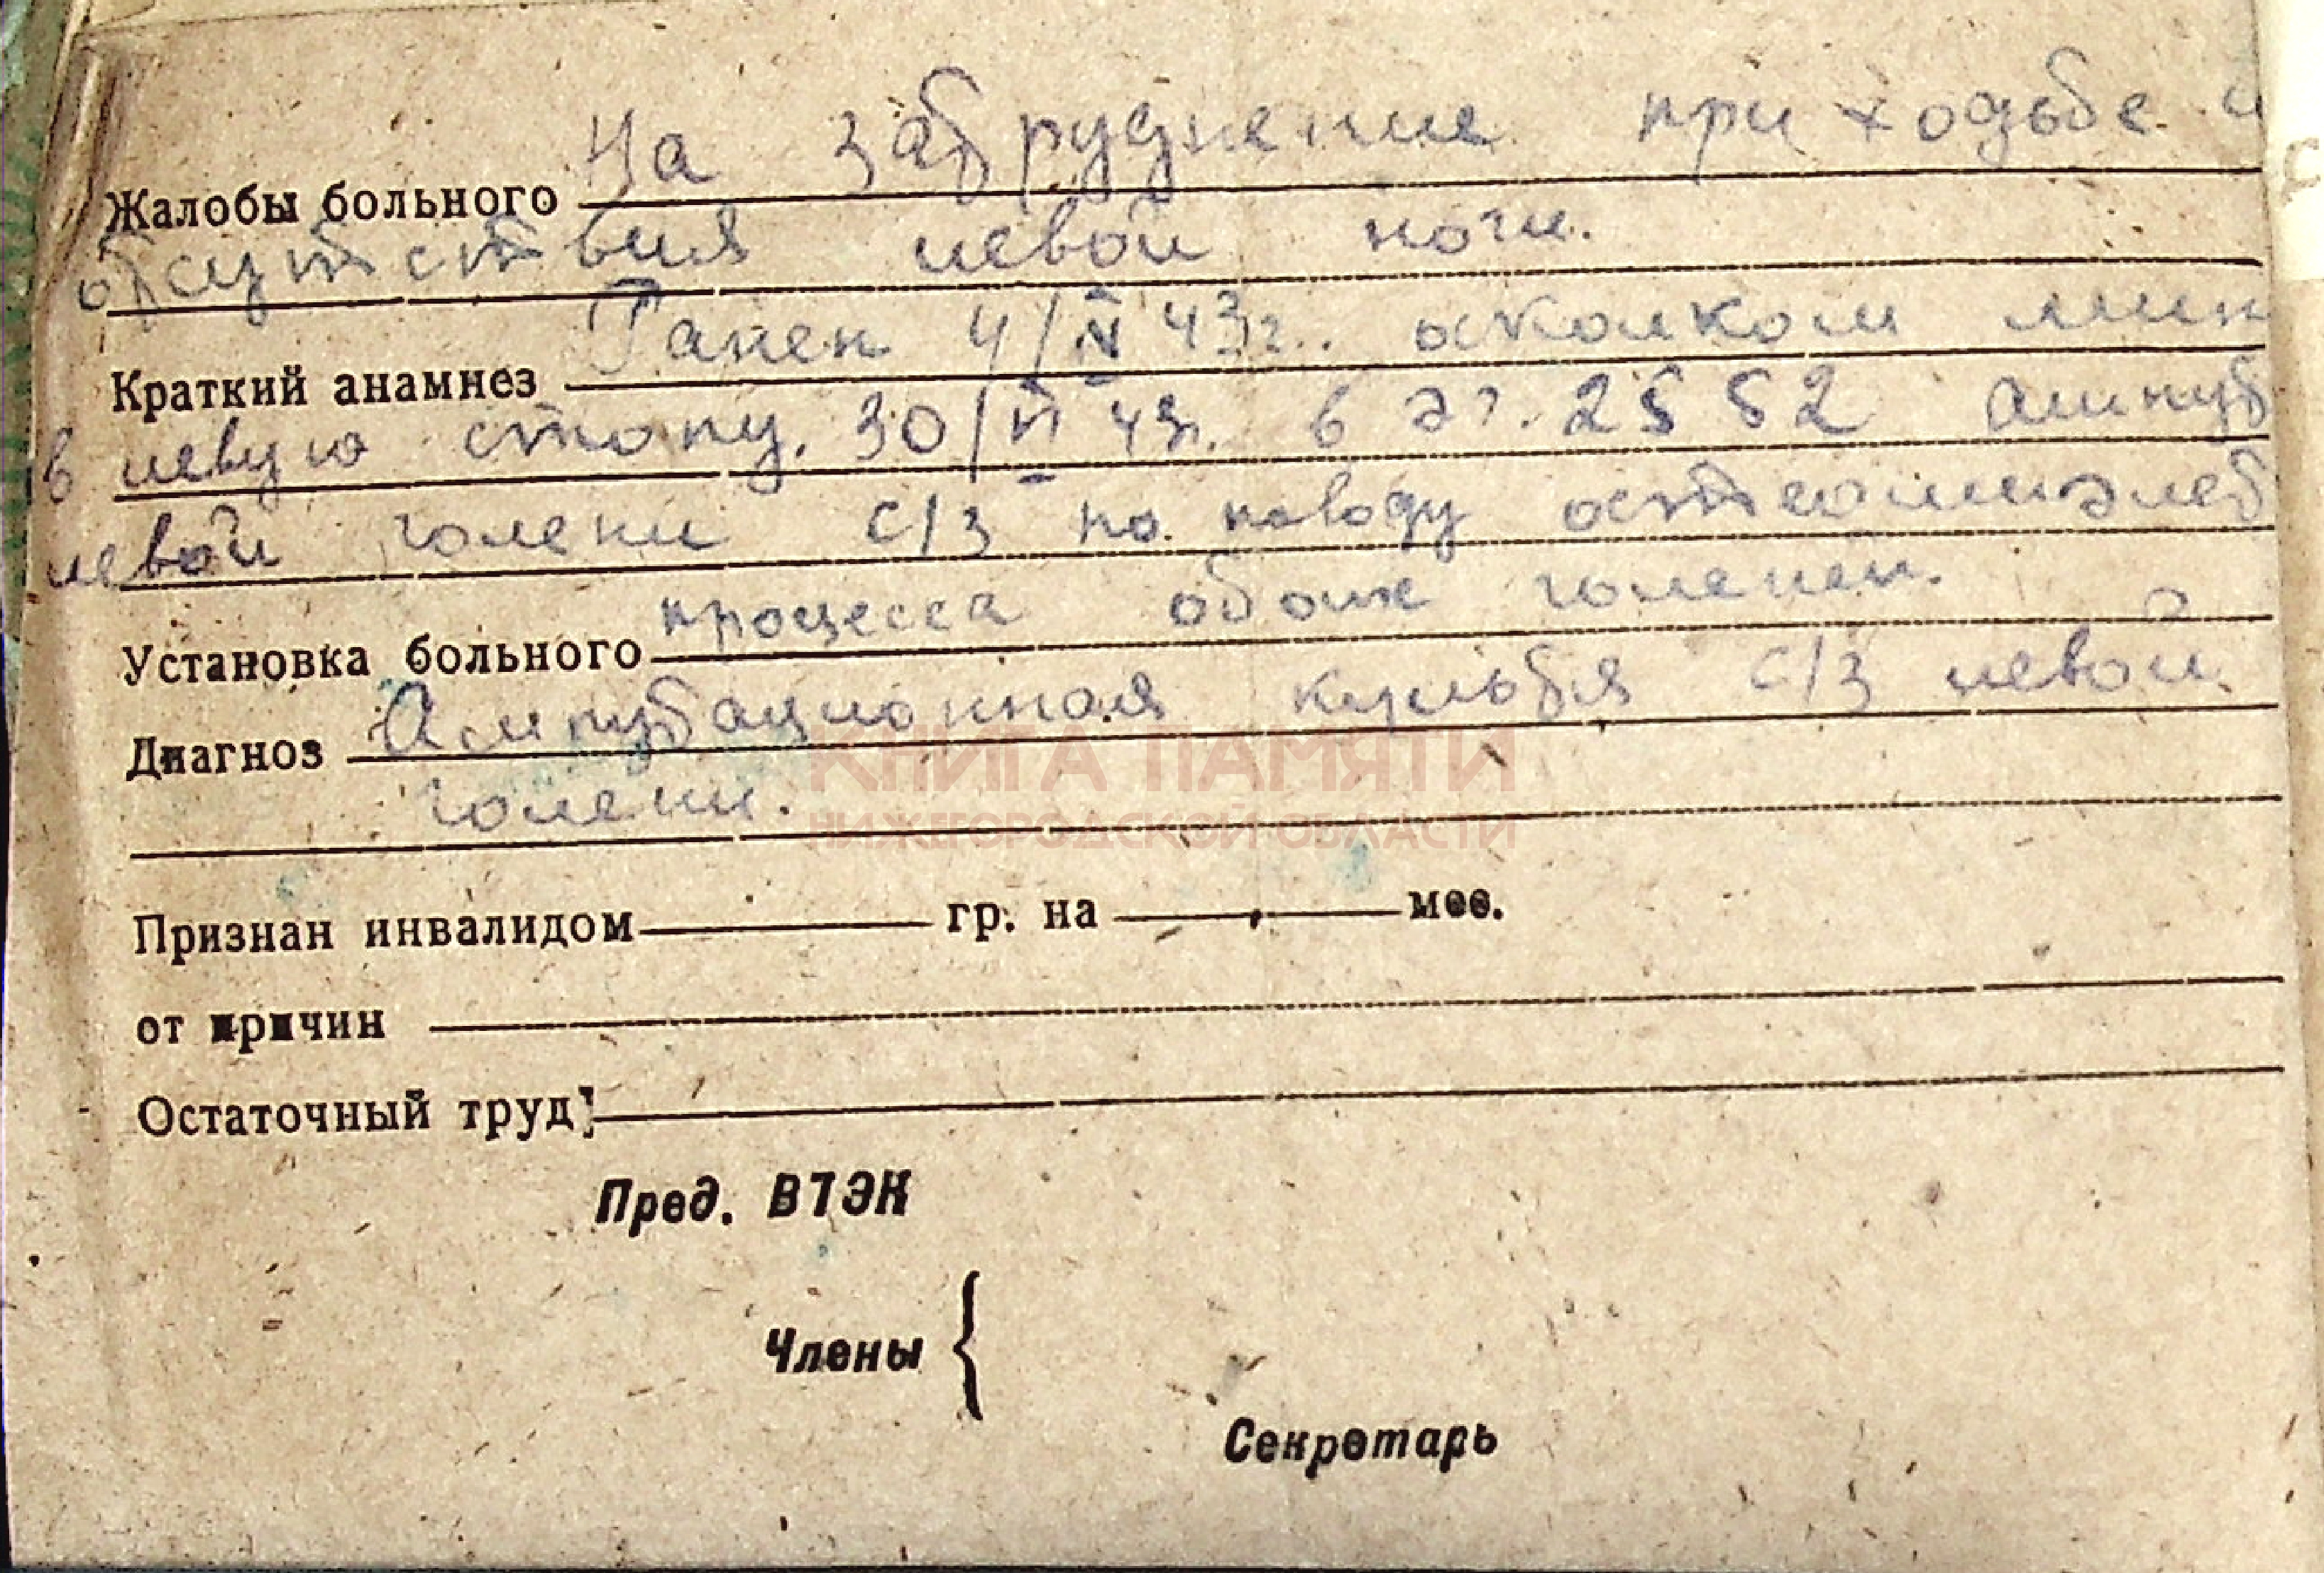 Жалобы больного На затруднение при ходьбе и
отсутствия левой ноги.
Краткий анамнез Ранен 4/IV 43г. осколком мин
в левую стопу. 30/VI 43г. в эг. 2552 ампут
левой голени с/з по поводу остеомиэлет
Установка больного процесса обоих голеней.
Диагноз Ампутационная культя с/з левой
голени.
КНИГА ПАМЯТИ
НИЖЕГОРОДСКОЙ ОБЛАСТИ
Признан инвалидом гр. на мес.
от причин
Остаточный труд
Пред. ВТЭК
Члены {
Секретарь